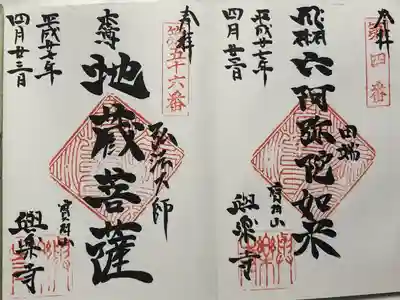 奉拝
第四番
六阿弥陀如来
田端
宝珠山
與楽寺
四月廿三日
奉拝
第五十六番
本尊
地蔵菩薩
弘法大師
宝珠山
與楽寺
平成廿七年
四月廿三日